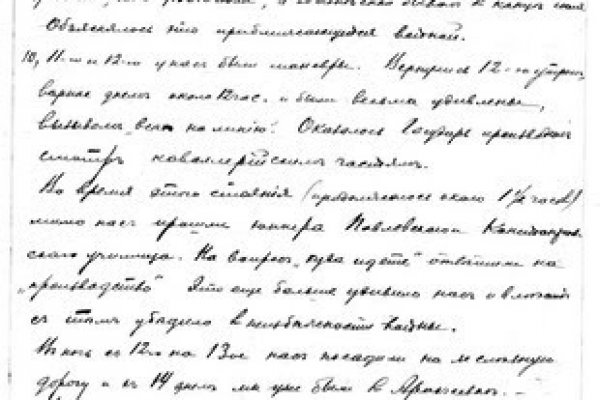 Объяснялось это приближающейся войной.
10, 11-го и 12-го у нас были маневры. Вернулись 12-го утром,
вернее днем около 12 час. и были весьма удивлены,
вызовом "всем на линию". Оказалось Государь производил
смотр кавалерийским частям.
Во время этого стояния (продолжалось около 1½ часов)
мимо нас прошли юнкера Павловского
училища. На вопрос "куда идете" ответили на
"производство" Это еще больше удивило нас и
с тем убедило в неизбежности войны.
В ночь с 12го на 13ое нас посадили на железную
дорогу и 14 днем мы уже были в